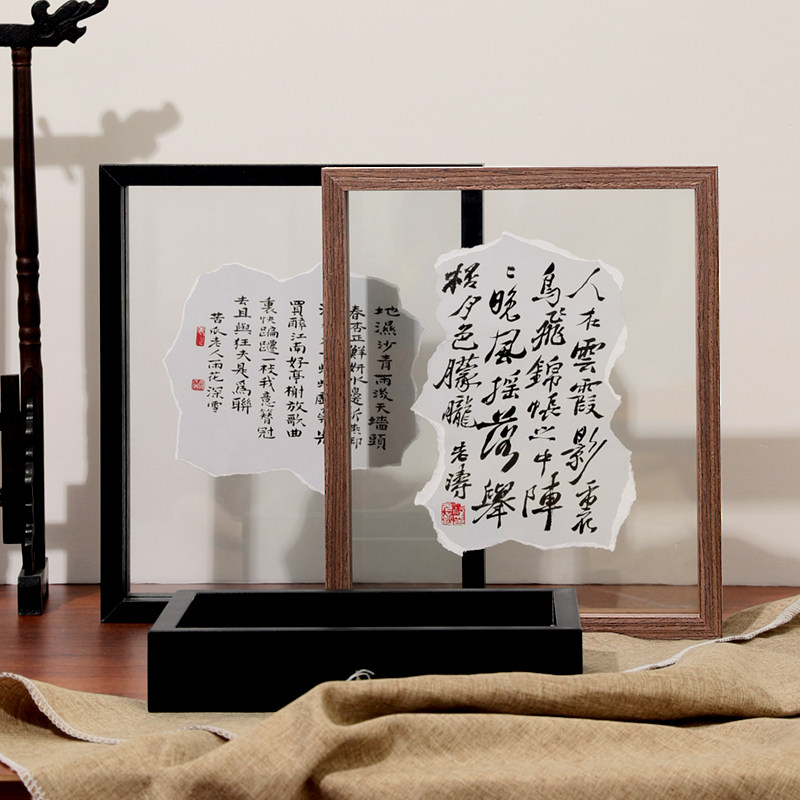 地濕沙青雨後天墻頭
春杏正鮮妍水邊
買醉江南好亭榭放歌曲
裏快蹁躚一枝我意簪冠
去且與狂夫是為聯
苦瓜老人雨花深雪
人在雲霞影裏
鳥飛錦帳之中陣
〻晚風搖落舉
橈夕色朦朧 濤